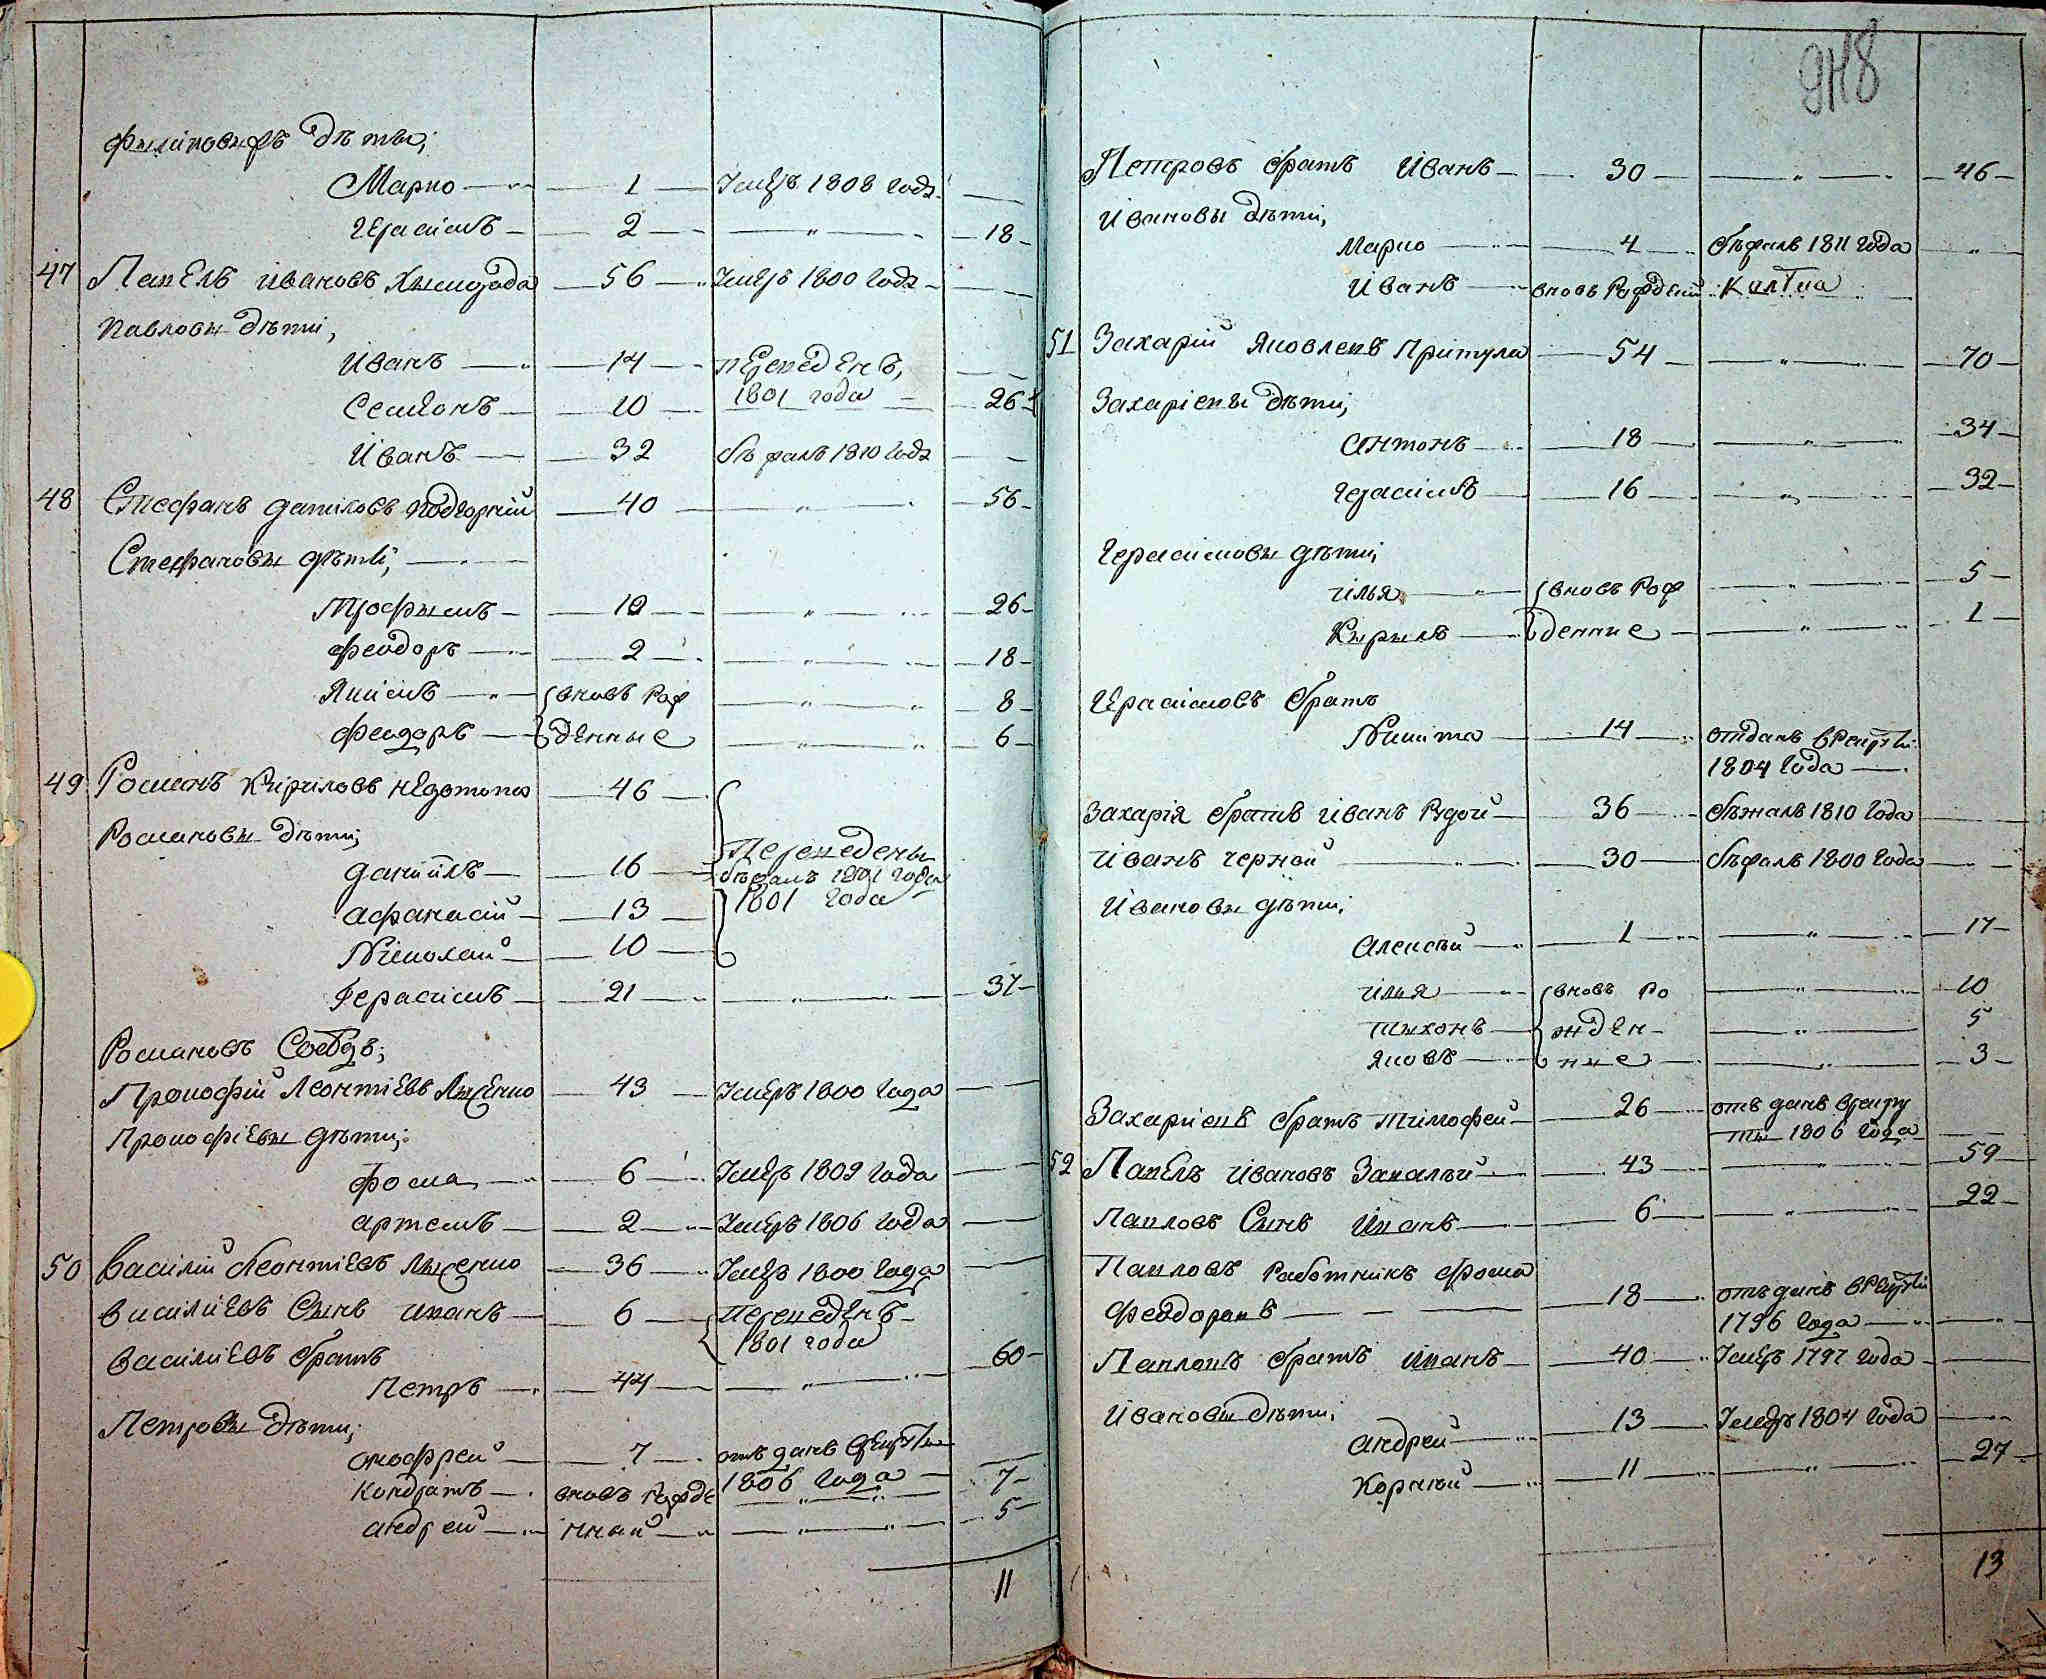 Филиповы дѣти;
Марко 1 Умеръ 1808 года
Герасимъ 2 18
47 Павелъ Ивановъ 56 Умеръ 1800 года
Павловы дѣти,
Иванъ 14 переведенъ,
1801 года
Семионъ 10 26
Иванъ 32 бѣжалъ 1810 года
48 Стефанъ Даниловъ Подгорний 40 56
Стефановы дѣти,
Трофымъ 10 26
Феодоръ 2 18
Якимъ вновь рож 8
Феодоръ денные 6
49 Романъ Кириловъ Недотопа 46
Романовы дѣти;
Даниилъ 16 Переведены
бѣжалъ 1801 года
Афанасий 13 1801 года
Николай 10
Герасимъ 21 37
Романовъ Сосѣдъ;
Прокофий Леонтиевъ Лысенко 43 Умеръ 1800 года
Прокофиевы дѣти;
Фома 6 Умеръ 1809 года
Артемъ 2 Умеръ 1806 года
50 Василий Леонтиевъ Лысенко 36 Умеръ 1800 года
Василиевъ Сынъ Иванъ 6 переведенъ
1801 года
Василиевъ братъ 60
Петръ 44
Петровы дѣти;
Онофрей 7 отъданъ врекруты
1806 года
Кондратъ вновь рожде 7
Андрей нный 5
11
948
Петровъ братъ Иванъ 30 46
Ивановы дѣти,
Марко 4 бѣжалъ 1811 года
Иванъ вновь рожденый
51 Захарий Яковлевъ Притула 54 70
Захариевы дѣти;
Антонъ 18 34
Герасимъ 16 32
Герасимовы дѣти;
Илья вновь рож 5
Кырылъ денние 1
Герасимовъ братъ
Никита 14 отданъ врекруты
1804 года
Захария братъ Иванъ Рудой 36 бѣжалъ 1810 года
Иванъ Черной 30 бѣжалъ 1800 года
Ивановы дѣти;
Алексѣй 1 17
Илья вновь ро 10
Тихонъ жден 5
Яковъ ные 3
Захариевъ братъ Тимофей 26 отъданъ врекру
ты 1806 года
52 Павелъ Ивановъ 43 59
Павловъ Сынъ Иванъ 6 22
Павловъ работникъ Фома
Феодоровъ 18 отъданъ врекруты
1796 года
Павловъ братъ Иванъ 40 Умеръ 1797 года
Ивановы дѣти;
Андрей 13 Умеръ 1804 года
Корний 11 27
13